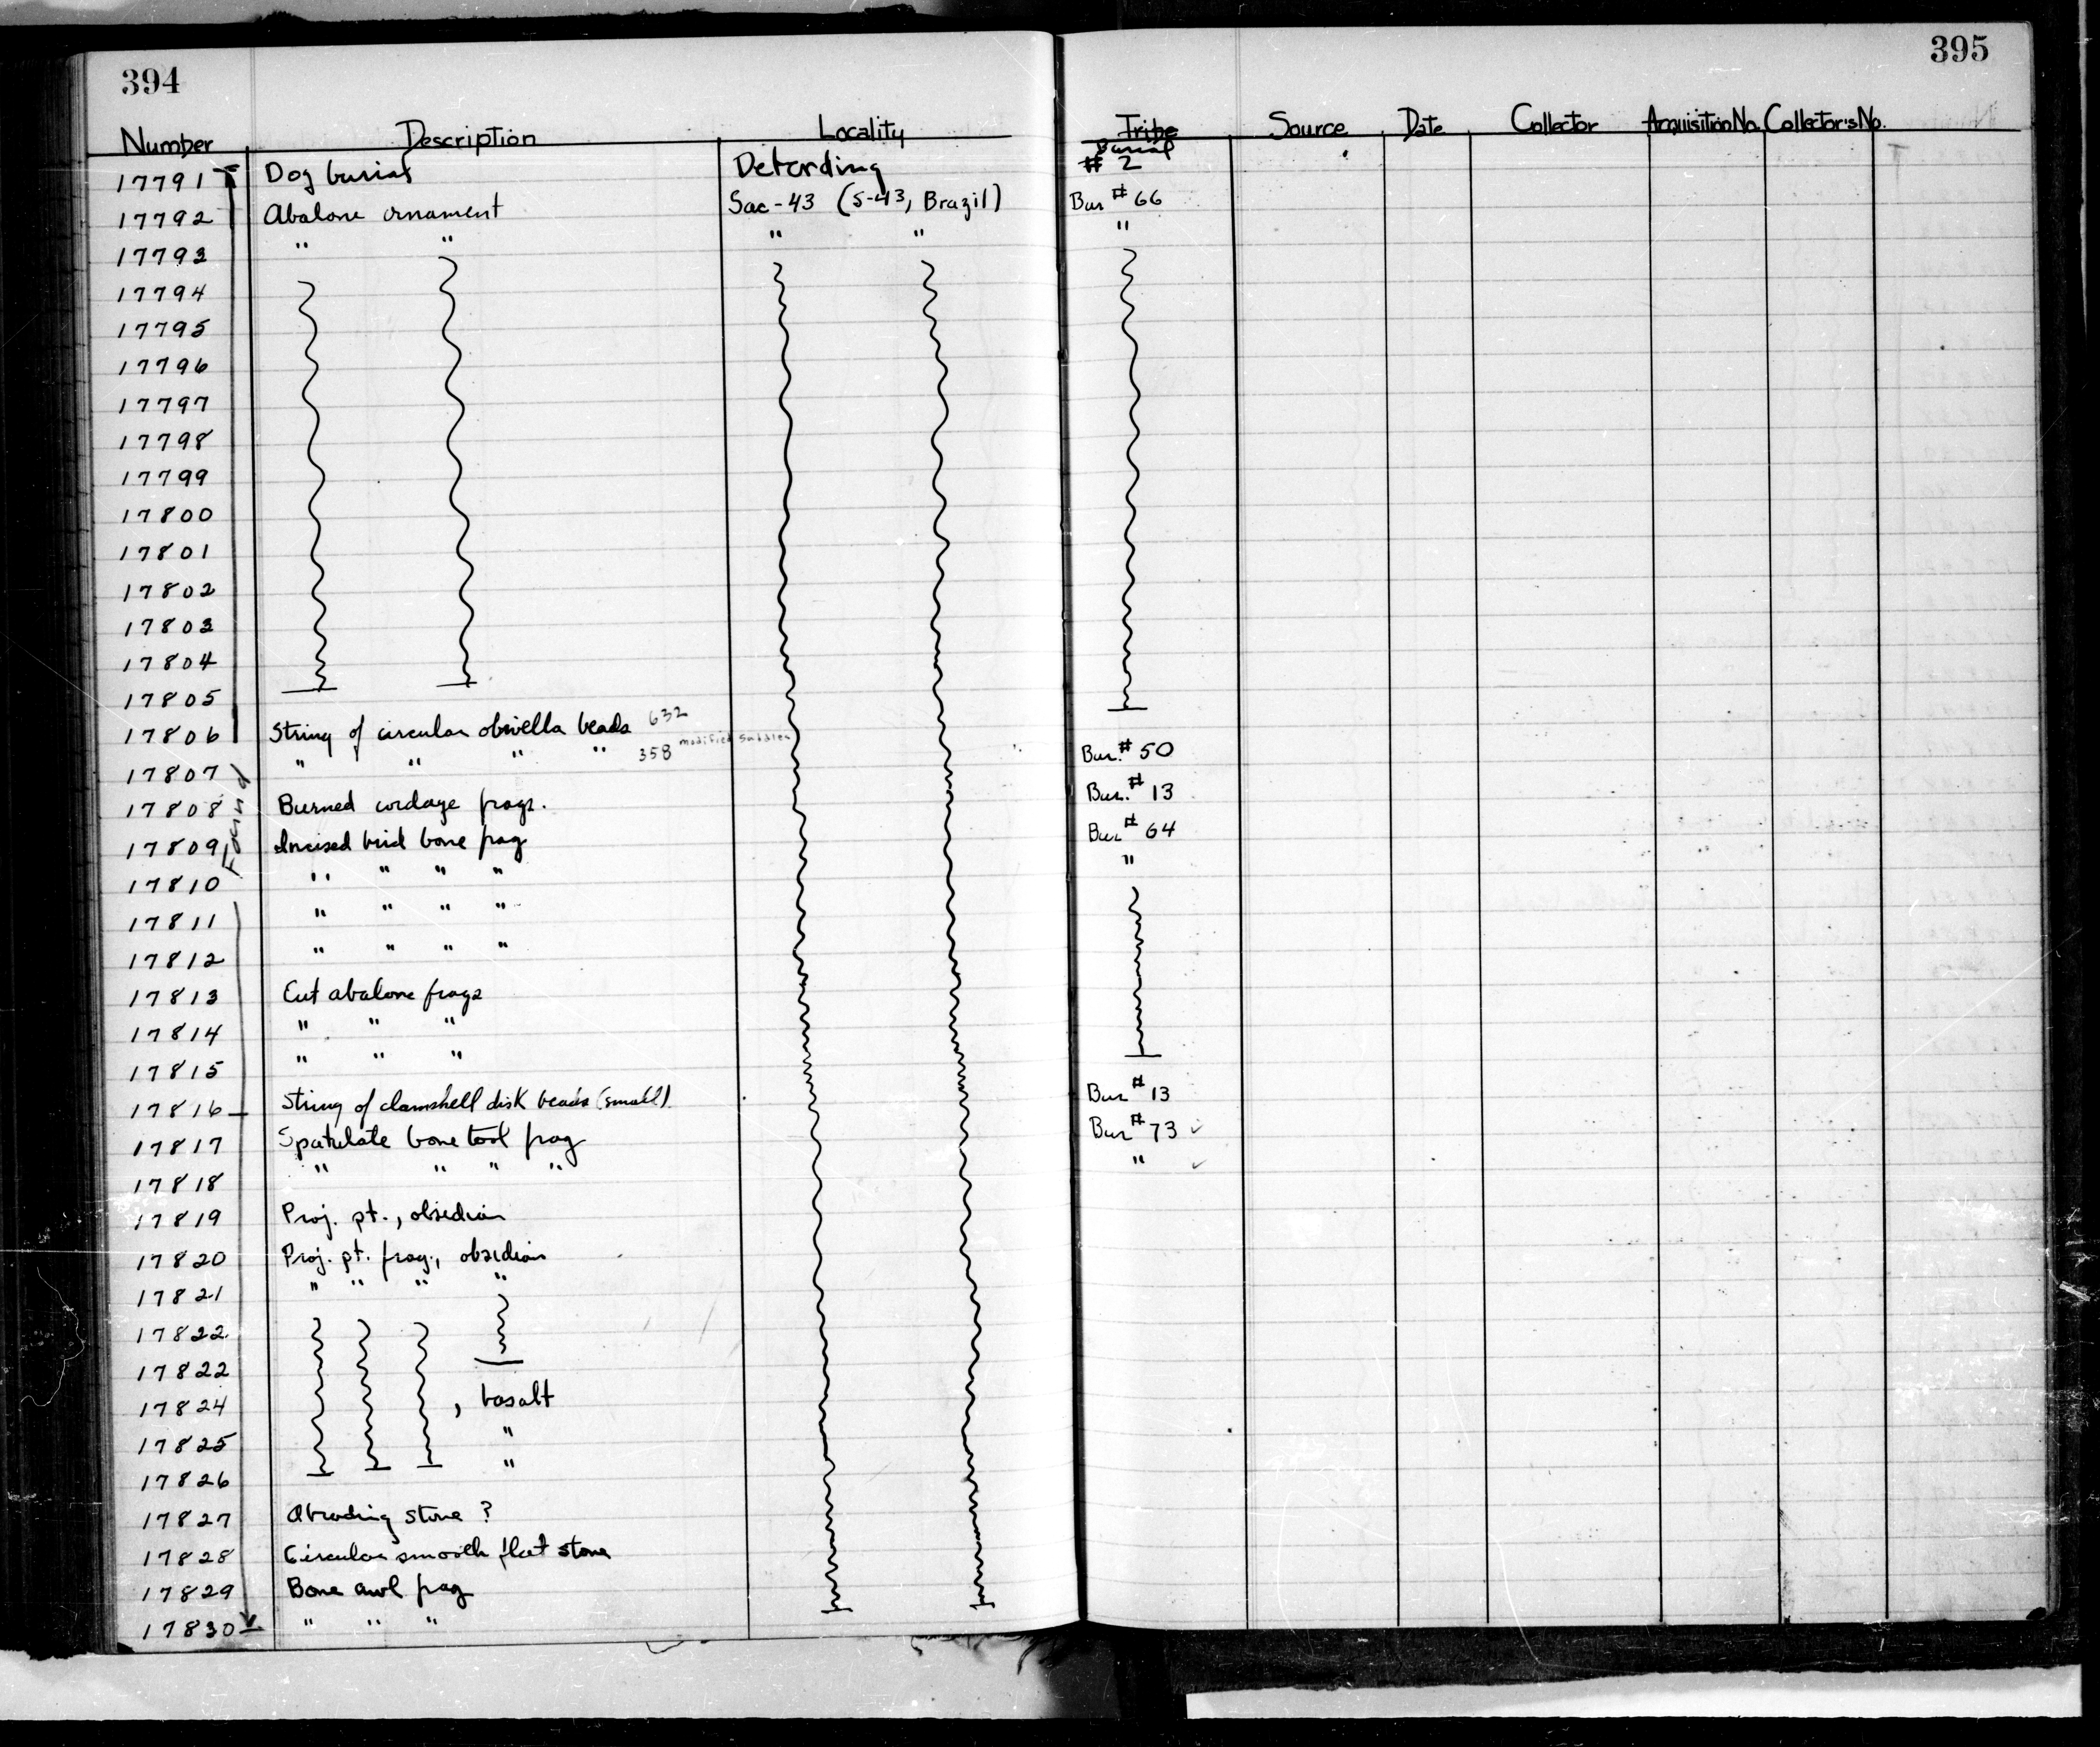 394
395
Number Description Locality Tribe Source Date Collector Acquisition No. Collector's No.
Burial
17791 Dog burial Deterding # 2
17792 Abalone ornament Sac-43 (S-43, Brazil) Bur # 66
17793 " " " " "
17794
17795
17796
17797
17798
17799
17800
17801
17802
17803
17804
17805
17806 String of circular olivella beads 632
17807 " " " " 358 modified saddles Bur. # 50
17808 Burned cordage frags. Bur. # 13
17809 Incised bird bone frag Bur # 64
Found
17810 " " " " "
17811 " " " "
17812 " " " "
17813 Cut abalone frags
17814 " " "
17815 " " "
17816 String of clamshell disk beads (small) Bur # 13
17817 Spatulate bone tool frag Bur # 73 ✓
17818 " " " " " ✓
17819 Proj. pt., obsidian
17820 Proj. pt. frag., obsidian
17821 " " " "
17822
17822
17824 , basalt
17825 "
17826 "
17827 Abrading stone ?
17828 Circular smooth flat stone
17829 Bone awl frag
17830 " " "